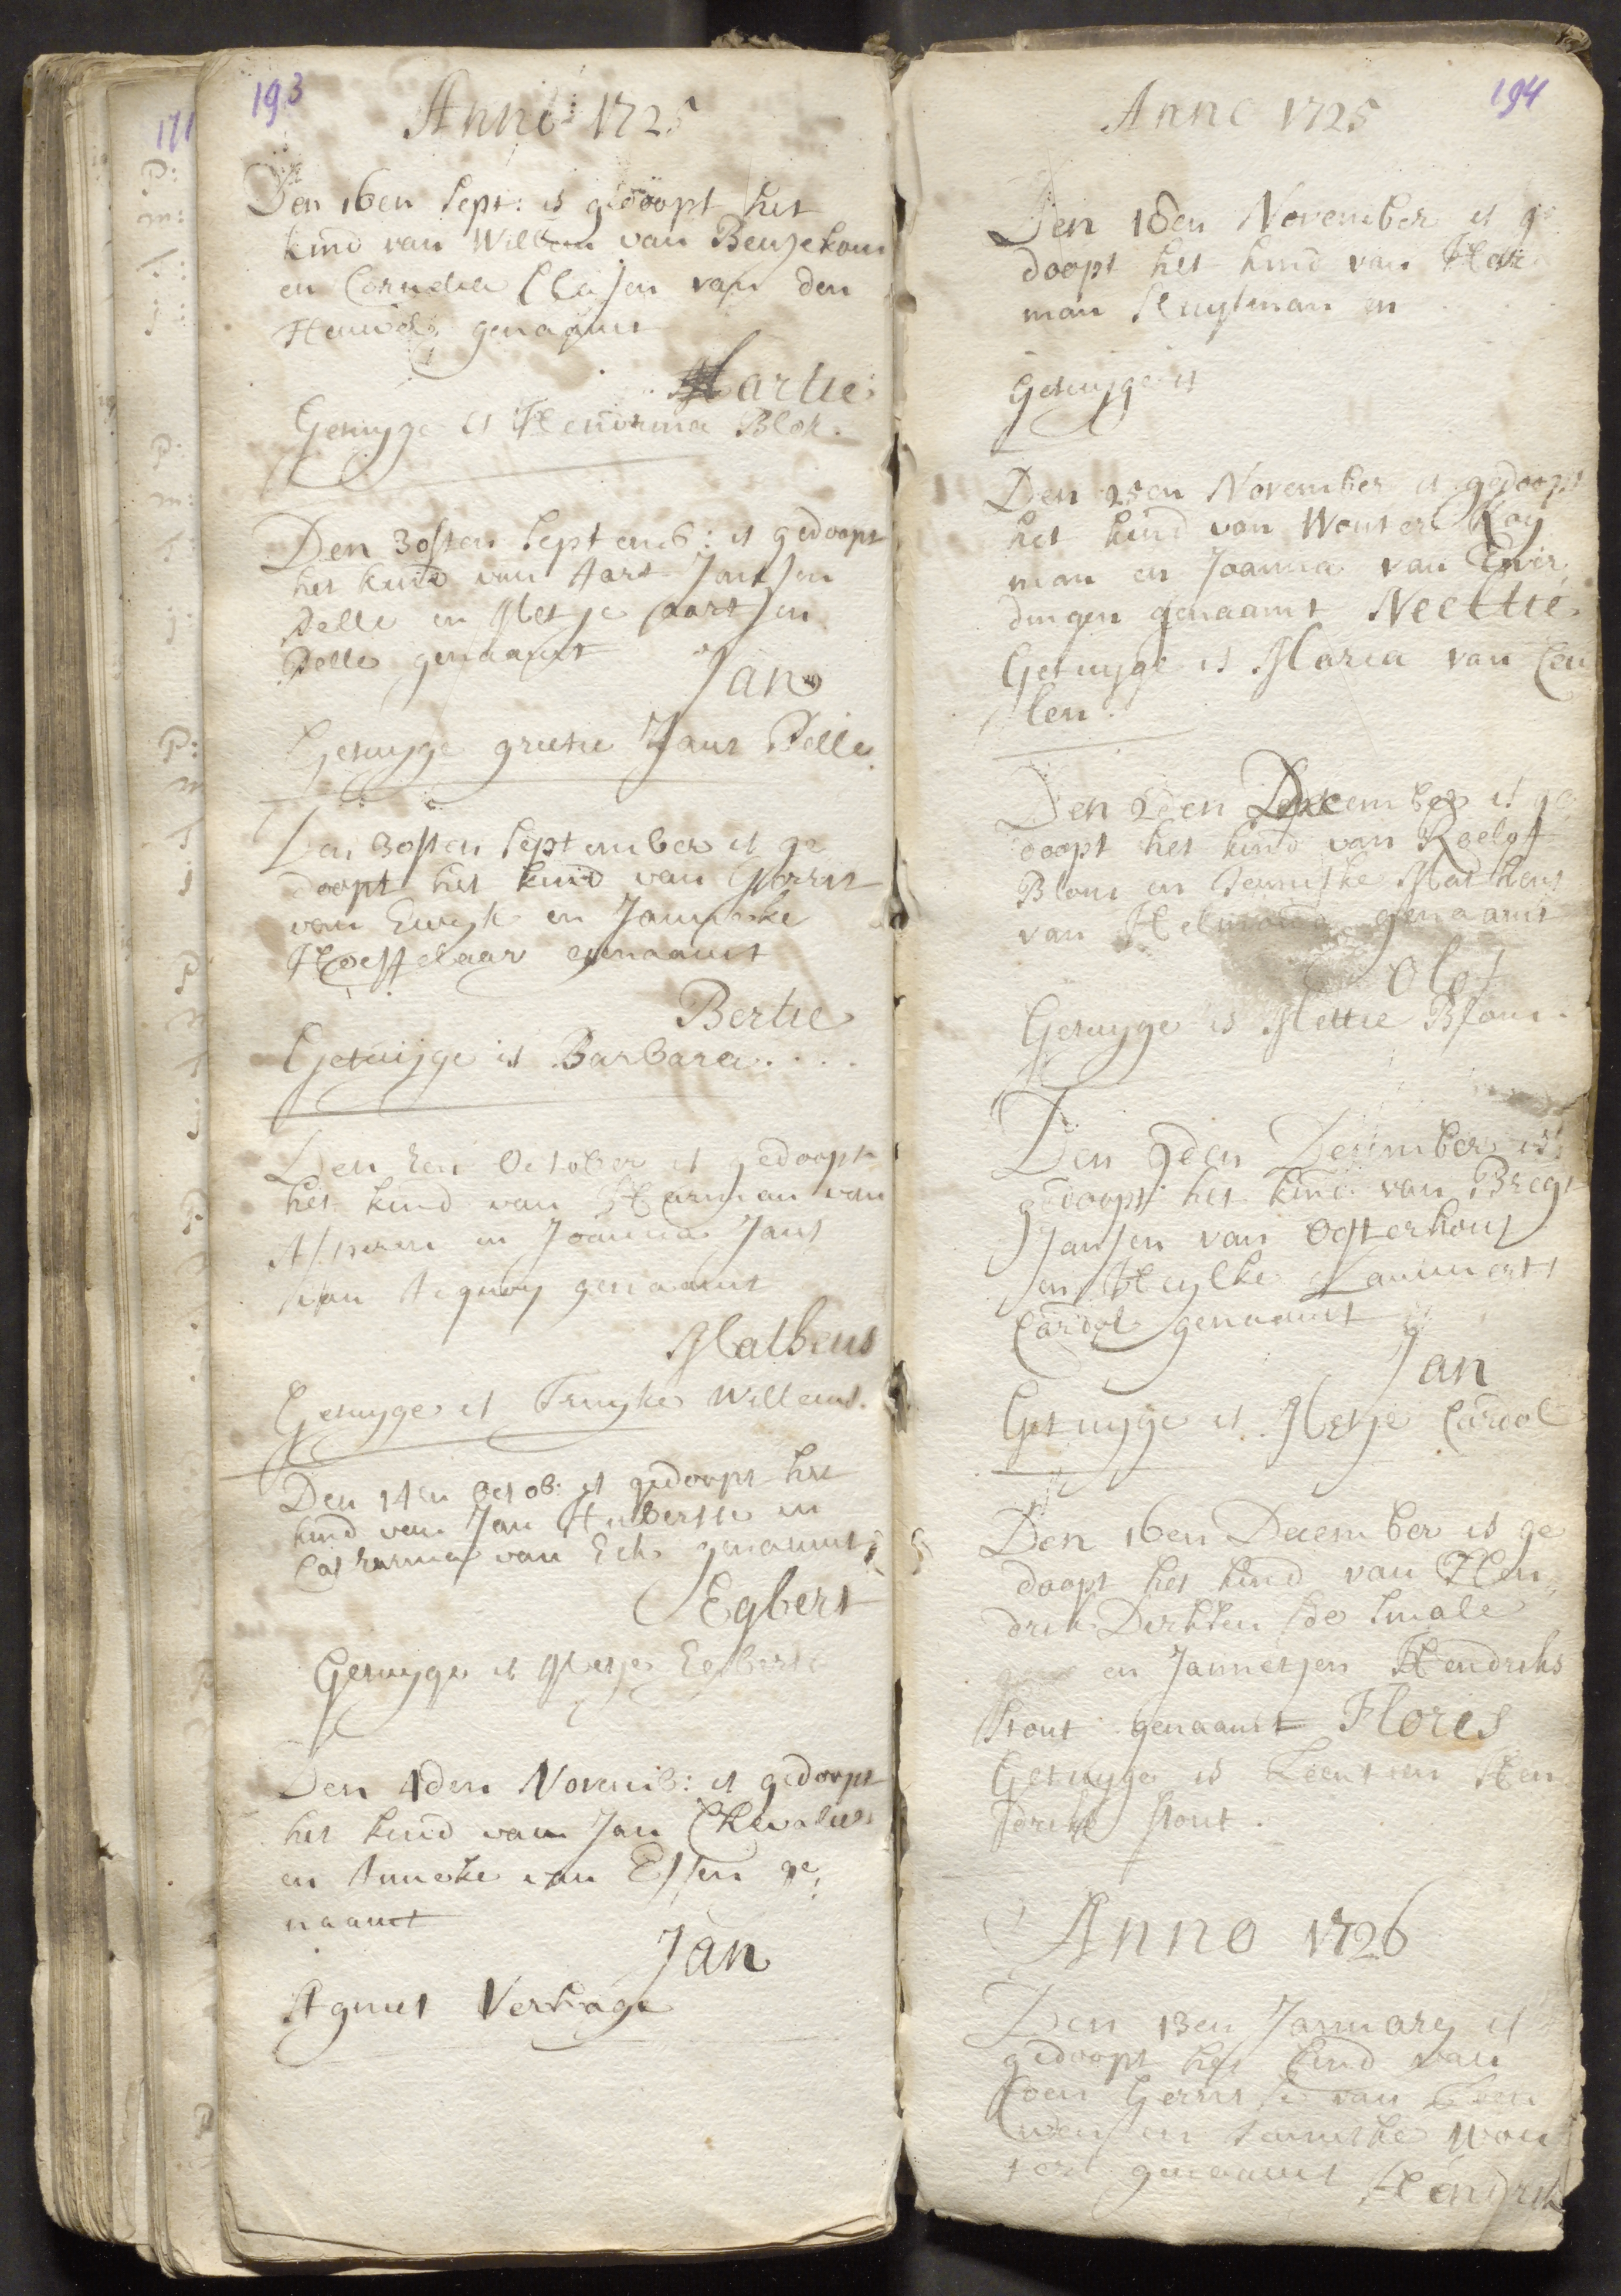 193
Anno 1725
Den 16en Sept: is gedoopt het
kind van Willem van Beusekom
en Cornelia Clasen van den
Heuvel genaamt
Martie
Getuyge is Hendrina Blok.
Den 30sten Septemb: is gedoopt
het kind van Aart Jansen
Pelle en Metje Aartsen
Pelle genaamt
Jan
Getuyge grietie Jans Pelle.
Den 30sten September is ge
doopt het kind van Gerrit
van Ewyk en Janneke
Hoeffelaar genaamt
Bertie
Getuijge is Barbara....
Den 7en October is gedoopt
het kind van Harman van
Asperen en Joanna Jans
van Acquoy genaamt
Matheus
Getuyge is Truyke Willems.
Den 14en Octob: is gedoopt het
kind van Jan Hubertse en
Catarina van Eck genaamt
Egbert
Getuyge is Metje Egberts
Den 4den Novemb: is gedoopt
het kind van Jan Chevalier
en Anneke van Essen ge:
naamt
Jan
Agnes Verhage
194
Anno 1725
Den 18en November is ge
doopt het kind van Har
man Sluytman en
Getuyge is
Den 25en November is gedoopt
het kind van Wouter Koy
man en Joanna van Ever
dingen genaamt Neeltie.
Getuyge is Maria van Ceu
len.
Den 2een December is ge
doopt het kind van Roelof
Blom en Jenneke Mathens
van Helmond genaamt
Olof
Getuyge is Mettie Blom.
Den 9den December is
gedoopt het kind van Bregt
Jansen van Oosterhout
en Heylke Lammerts
Cardol genaamt
Jan
Getuyge is Metje Cardol
Den 16en December is ge
doopt het kind van Hen
drik Dirksen de Smale
en Jannetjen Hendriks
Stout genaamt Flores
Getuyge is Leentien Hen
driks Stout.
Anno 1726
Den 13en January is
gedoopt het kind van
Coen Gerritse van
en Jenneke Wou
ters genaamt Hendrik